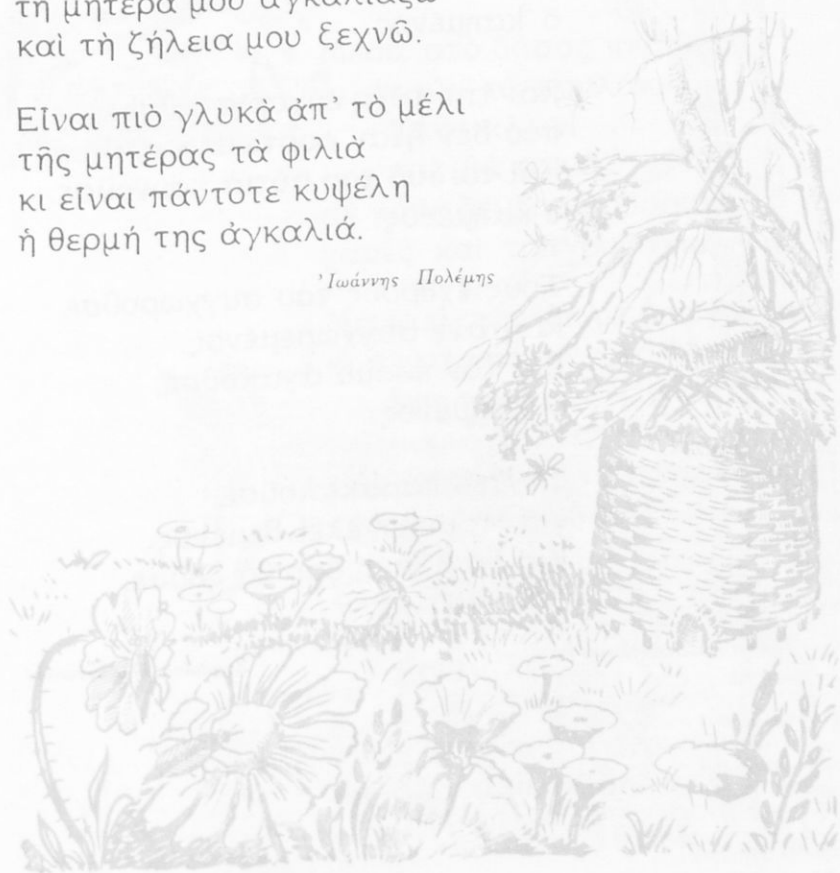 τὴ μητέρα μου ἀγκαλιάζω
καὶ τὴ ζήλεια μου ξεχνῶ.
Εἶναι πιὸ γλυκὰ ἀπ' τὸ μέλι
τῆς μητέρας τὰ φιλιὰ
κι εἶναι πάντοτε κυψέλη
ἡ θερμή της ἀγκαλιά.
Ἰωάννης Πολέμης